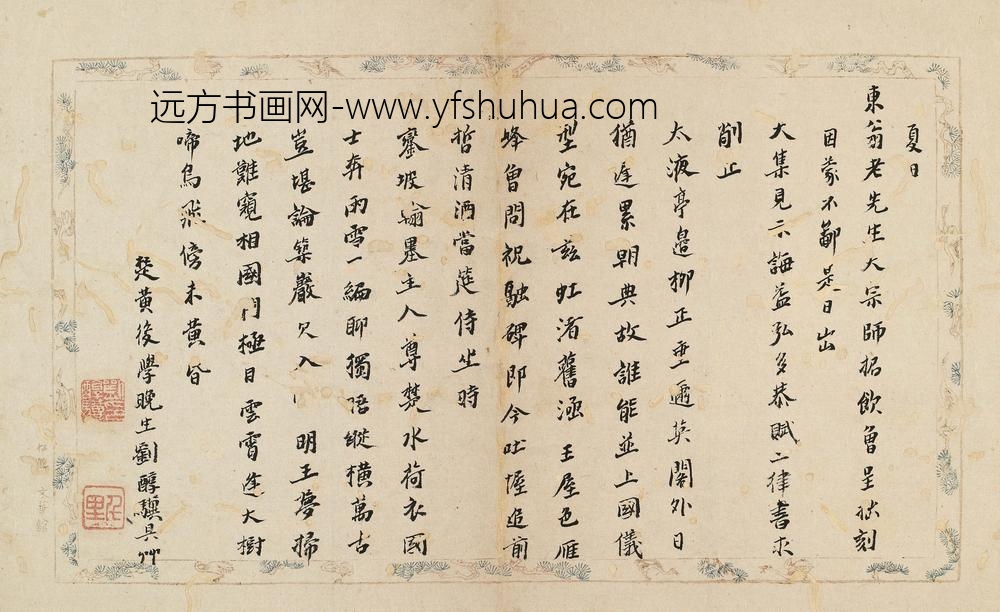 远方书画网-www.yfshuhua.com
夏日
東翁老先生大宗師招飲魯呈拙刻
因蒙不鄙是日出
大集見示誨益弘多恭賦二律書求
削正
太液亭邊柳正垂邇英閣外日
猶遲累朝典故誰能並上國儀
型宛在兹虹渚舊涵王屋色雁
峰曾問祝融碑即今吐握追前
哲清洒當筵侍坐時
鑾坡翰墨主人尊楚水荷衣國
士奔雨雪一編聊獨唔縱橫萬古
豈堪論築巖只入明王夢掃
地難窺相國門極目雲霄進大樹
啼烏飛傍未黃昏
楚黃後學晚生劉醇驥具艸